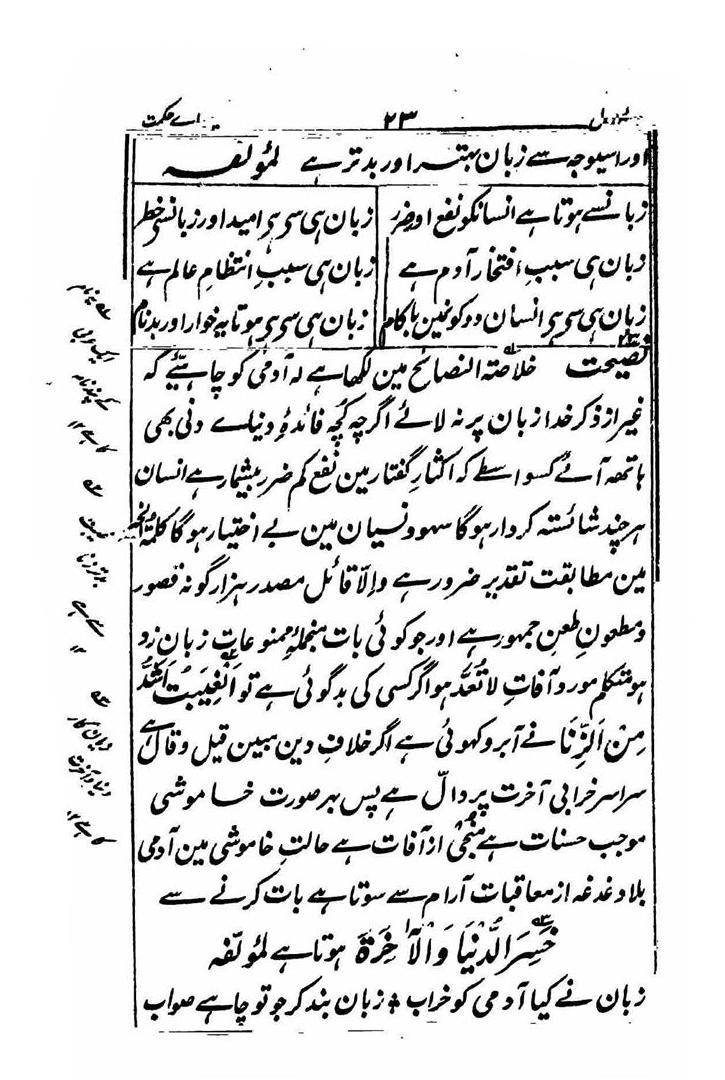 ۲۳ اے حکمت
اور اسیوجہ سے زبان بہتر اور بدتر ہے لمؤلفہ
زبانسے ہوتا ہے انسانکو نفع اور ضرر زبان ہی سے ہے امید اور زبانسے خطر
زبان ہی سبب افتخار آدم ہے زبان ہی سببِ انتظامِ عالم ہے
زبان ہی سے ہے انسان دو کونین با کام زبان ہی سے ہے ہوتا یہ خوار اور بدنام
نصیحت ۲۳ خلاصۃ النصائح مین لکھا ہے کہ آدمی کو چاہیئے کہ
غیر از ذکر خدا زبان پر نہ لائے اگرچہ کچھ فائدۂ دنیاے دنی بھی
ہاتھ آئے کسواسطے کہ اکثار گفتار مین نفع کم ضرر بیشمار ہے انسان
ہرچند شائستہ کردار ہوگا سہو و نسیان مین بے اختیار ہوگا کلمۃ
مین مطابقت تقدیر ضرور ہے والّا قائل مصدر ہزار گونہ قصور
و مطعونِ طعن جمہور ہے اور جو کوئی بات منجملۂ ممنوعات زبان زد
ہو متکلم مورد آفاتِ لاتُعَدّ ہو اگر کسی کی بدگوئی ہے تو اَلْغِیْبَتُ اَشَدُّ
مِنَ الزِّنَا نے آبرو کھوئی ہے اگر خلافِ دین مبین قیل و قال ہے
سراسر خرابی آخرت پر دالّ ہے پس بہر صورت خاموشی
موجب حسنات ہے منجی از آفات ہے حالتِ خاموشی مین آدمی
بلا دغدغہ از معاقبات آرام سے سوتا ہے بات کرنے سے
خَسِرَ الدُّنْیَا وَالْآخِرَۃَ ہوتا ہے لمؤلفہ
زبان نے کیا آدمی کو خراب ٭ زبان بند کر جو تو چاہے صواب